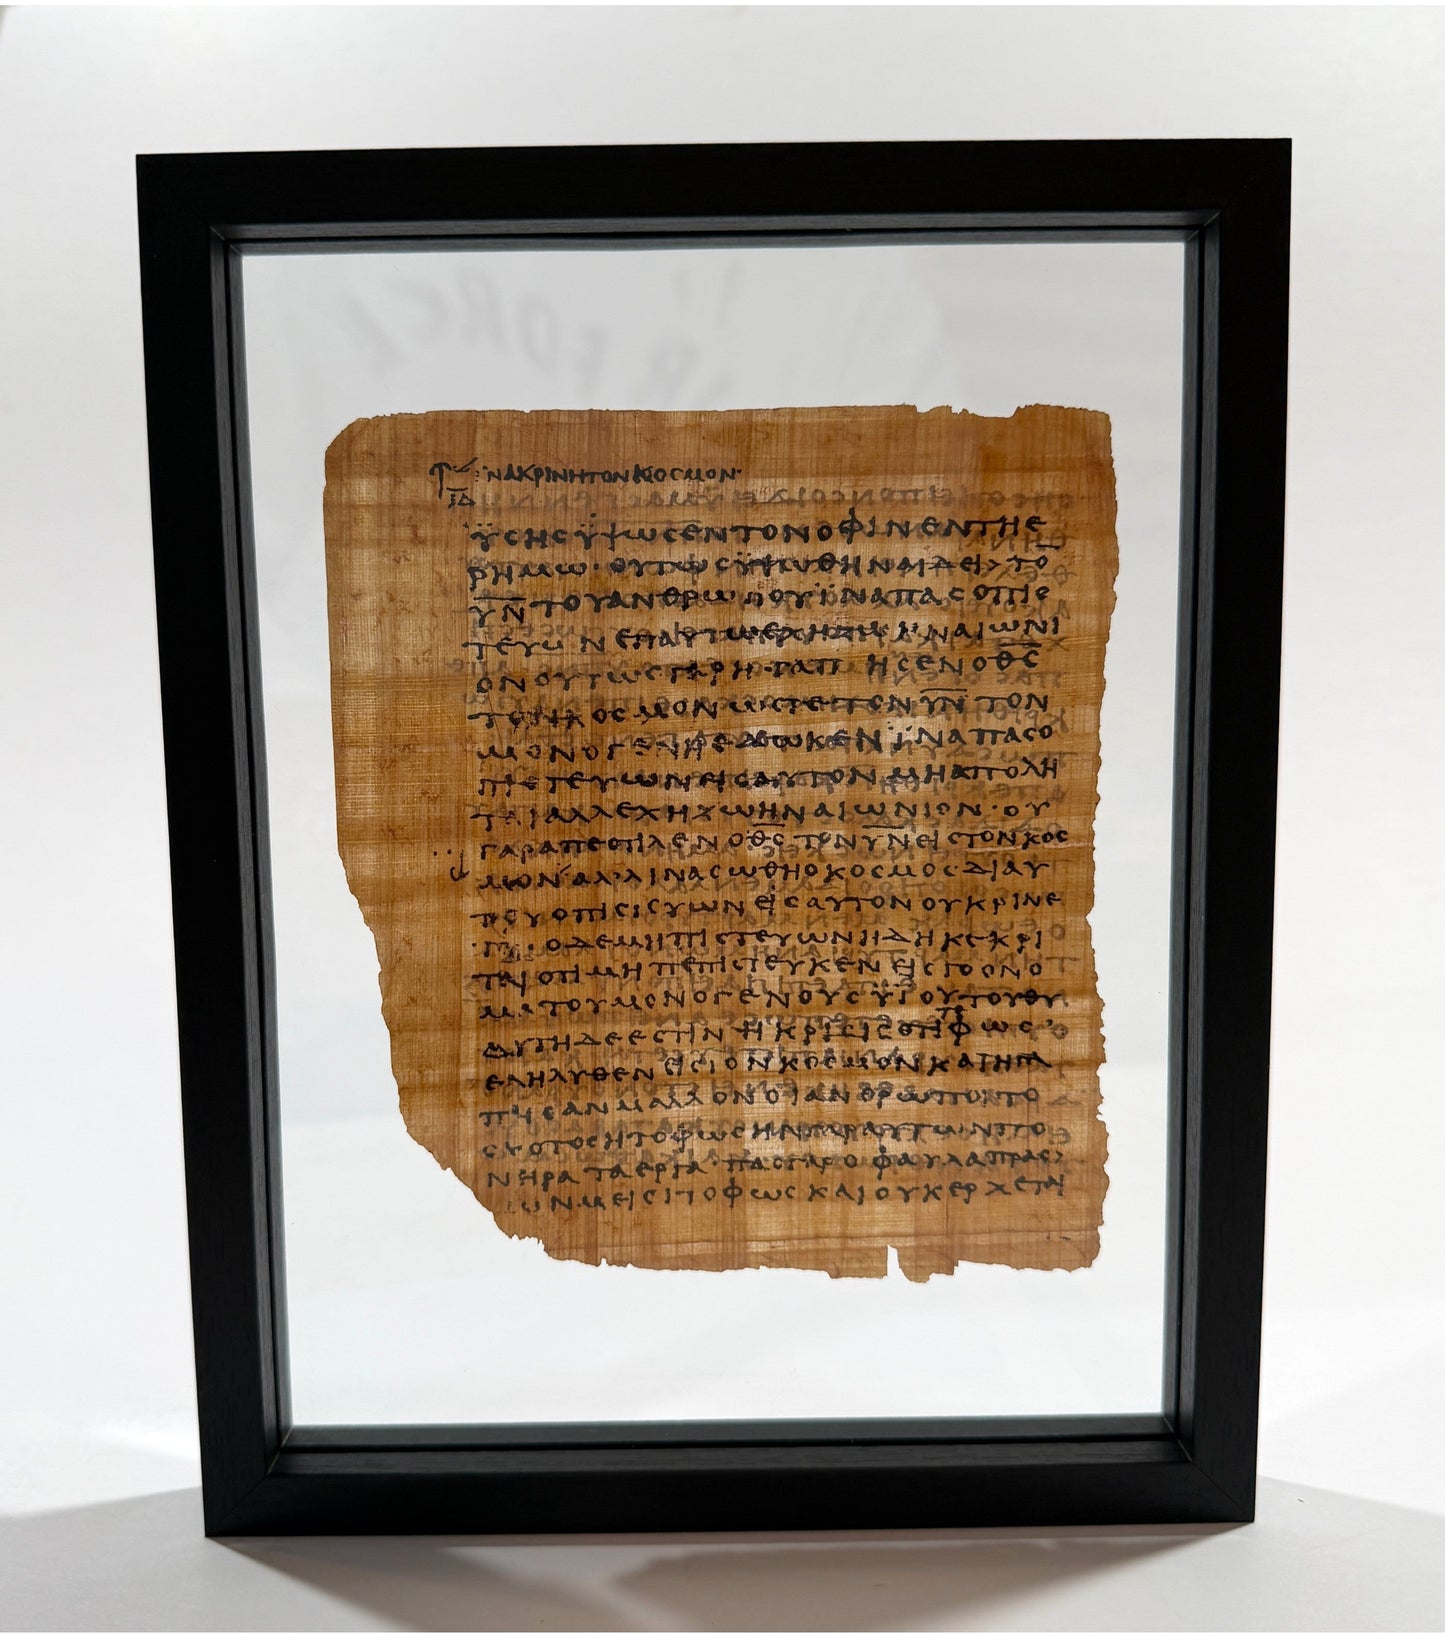 ΝΑΚΡΙΝΗΤΟΝΚΟCΜΟΝ·
Ι̅Δ̅
ΫCΗCΫΨΩCΕΝΤΟΝΟΦΙΝΕΝΤΗΕ
ΡΗΜΩ·ΟΥΤΩCΫΨΩΘΗΝΑΙΔΕΙ>ΤΟ̅
Υ̅Ν̅ΤΟΥΑΝΘΡΩΠΟΥΪΝΑΠΑCΟΠΙC
ΤΕΥΩΝΕΠΑΥΤΩΕΧΗΖΩΗΝΑΙΩΝΙ
ΟΝΟΥΤΩCΓΑΡΗΓΑΠΗCΕΝΟΘ̅C̅
ΤΟΝΚΟCΜΟΝΩCΤΕΤΟΝΥ̅Ν̅ΤΟΝ
ΜΟΝΟΓΕΝΗΕΔΩΚΕΝΪΝΑΠΑCΟ
ΠΙCΤΕΥΩΝΕΙCΑΥΤΟΝΜΗΑΠΟΛΗ
ΤΑΙΑΛΛΕΧΗΖΩΗΝΑΙΩΝΙΟΝ·ΟΥ
ΓΑΡΑΠΕCΤΙΛΕΝΟΘ̅C̅ΤΟΝΥ̅Ν̅ΕΙCΤΟΝΚΟC
ΜΟΝΑΛΛΙΝΑCΩΘΗΟΚΟCΜΟCΔΙΑΥ
ΤΟΥΟΠΙCΤΕΥΩΝΕΙCΑΥΤΟΝΟΥΚΡΙΝΕ
ΤΑΙ·ΟΔΕΜΗΠΙCΤΕΥΩΝΗΔΗΚΕΚΡΙ
ΤΑΙΟΤΙΜΗΠΕΠΙCΤΕΥΚΕΝΕΙCΤΟΟΝΟ
ΜΑΤΟΥΜΟΝΟΓΕΝΟΥCΫΙΟΥΤΟΥΘΥ
ΑΥΤΗΔΕΕCΤΙΝΗΚΡΙCΙCΟΤΙΤΟΦΩC
ΕΛΗΛΥΘΕΝΕΙCΤΟΝΚΟCΜΟΝΚΑΙΗΓΑ
ΠΗCΑΝΜΑΛΛΟΝΟΙΑΝΘΡΩΠΟΙΤΟ
CΚΟΤΟCΗΤΟΦΩCΗΝΓΑΡΑΥΤΩΝΠΟ
ΝΗΡΑΤΑΕΡΓΑ·ΠΑCΓΑΡΟΦΑΥΛΑΠΡΑC
CΩΝΜΕΙCΙΤΟΦΩCΚΑΙΟΥΚΕΡΧΕΤΑΙ